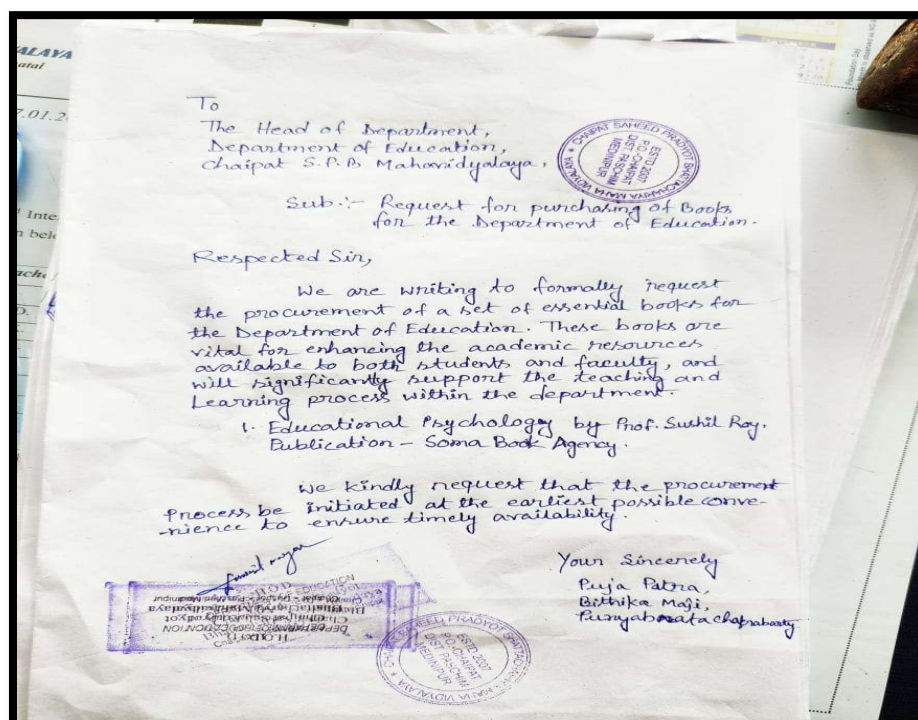 To
The Head of Department,
Department of Education,
Chaipat S.P.B Mahavidyalaya,
CHAIPAT SAHEED PRADYOT BHATTACHARYA MAHA VIDYALAYA
ESTD 2007
P.O.-CHAIPAT
DIST PASCHIM
MEDINIPUR
Sub:- Request for purchasing of Books
for the Department of Education.
Respected Sir,
We are writing to formally request
the procurement of a set of essential books for
the Department of Education. These books are
vital for enhancing the academic resources
available to both students and faculty, and
will significantly support the teaching and
Learning process within the department.
1. Educational Psychology by Prof. Sushil Roy.
Publication – Soma Book Agency.
We kindly request that the procurement
Process be initiated at the earliest possible conve-
-nience to ensure timely availability.
Your Sincerely
Puja Patra,
Bithika Maji,
Punyabrata Chakrabarty
H.O.D
EDUCATION
CHAIPAT SAHEED PRADYOT BHATTACHARYA MAHA VIDYALAYA
ESTD 2007
P.O.-CHAIPAT
DIST PASCHIM
MEDINIPUR